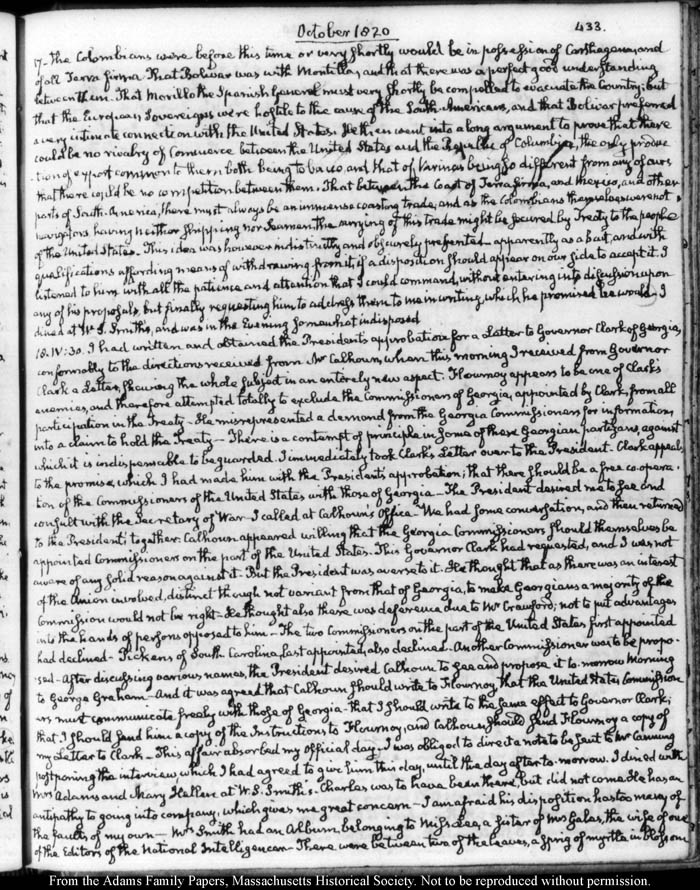 October 1820
433.
17. The Colombians were before this time or very shortly would be in possession of Carthagena, and
of all Terra firma. That Bolivar was with Montilla, and that there was a perfect good understanding
between them. That Morillo the Spanish General must very shortly be compelled to evacuate the Country; but
that the European Sovereigns were hostile to the cause of the South-Americans, and that Bolivar preferred
a very intimate connection with the United States. He then went into a long argument to prove that there
could be no rivalry of Commerce between the United States and the Republic of Columbia, the only produc-
-tion of export common to them both being tobacco, and that of Varinas being so different from any of ours
that there could be no competition between them. That between the Coast of Terra firma, and Mexico, and other
parts of South-America, there must always be an immense coasting trade, and as the Colombians themselves were not
navigators having neither shipping nor Seamen, the carrying of this trade might be secured by Treaty to the people
of the United States. This idea was however indistinctly and obscurely presented apparently as a bait, and with
qualifications affording means of withdrawing from it, if a disposition should appear on our side to accept it. I
listened to him with all the patience and attention that I could command, without entering into discussion upon
any of his proposals, but finally requesting him to address them to me in writing, which he promised he would. I
dined at W. S. Smith's, and was in the Evening somewhat indisposed.
18. IV:30. I had written and obtained the President's approbation for a Letter to Governor Clark of Georgia,
conformably to the directions received from Mr Calhoun, when this morning I received from Governor
Clark a Letter, shewing the whole subject in an entirely new aspect. Flournoy appears to be one of Clark's
enemies, and therefore attempted totally to exclude the Commissioners of Georgia, appointed by Clark, from all
participation in the Treaty – He misrepresented a demand from the Georgia Commissioners for information,
into a claim to hold the Treaty – There is a contempt of principle in some of these Georgian partizans, against
which it is indispensable to be guarded. I immediately took Clark's Letter over to the President. Clark appeals
to the promise, which I had made him with the President's approbation; that there should be a free co opera-
tion of the Commissioners of the United States with those of Georgia – The President desired me to see and
consult with the Secretary of War. I called at Calhoun's Office – We had some conversation, and then returned
to the President together. Calhoun appeared willing that the Georgia Commissioners should themselves be
appointed Commissioners on the part of the United States. This Governor Clark had requested, and I was not
aware of any solid reason against it. But the President was averse to it. He thought that as there was an interest
of the Union involved, distinct though not variant from that of Georgia, to make Georgians a majority of the
Commission would not be right – He thought also there was deference due to Mr Crawford; not to put advantages
into the hands of persons opposed to him – The two Commissioners on the part of the United States first appointed
had declined – Pickens of South Carolina, last appointed, also declined. Another Commissioner was to be propo-
sed – After discussing various names, the President desired Calhoun to see and propose it to-morrow Morning
to George Graham – And it was agreed that Calhoun should write to Flournoy, that the United States Commission-
ers must communicate freely with those of Georgia – that I should write to the same effect to Governor Clark;
that I should send him a copy of the Instructions to Flournoy, and Calhoun should send Flournoy a copy of
my Letter to Clark – This affair absorbed my official day; I was obliged to direct a note to be sent to Mr Canning
postponing the interview which I had agreed to give him this day, until the day after to-morrow. I dined with
Mrs Adams and Mary Hellen at W. S. Smith's – Charles was to have been there, but did not come. He has an
antipathy to going into company, which gives me great concern – I am afraid his disposition has too many of
the faults of my own – Mrs Smith had an Album belonging to Miss Lee, a sister of Mrs Gales, the wife of one
of the Editors of the National Intelligencer – There were between two of the leaves, a sprig of myrtle in blossom
From the Adams Family Papers, Massachusetts Historical Society. Not to be reproduced without permission.